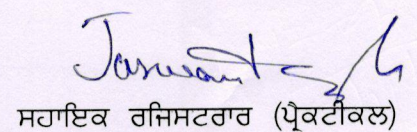 Jaswant
ਸਹਾਇਕ ਰਜਿਸਟਰਾਰ (ਪ੍ਰੈਕਟੀਕਲ)